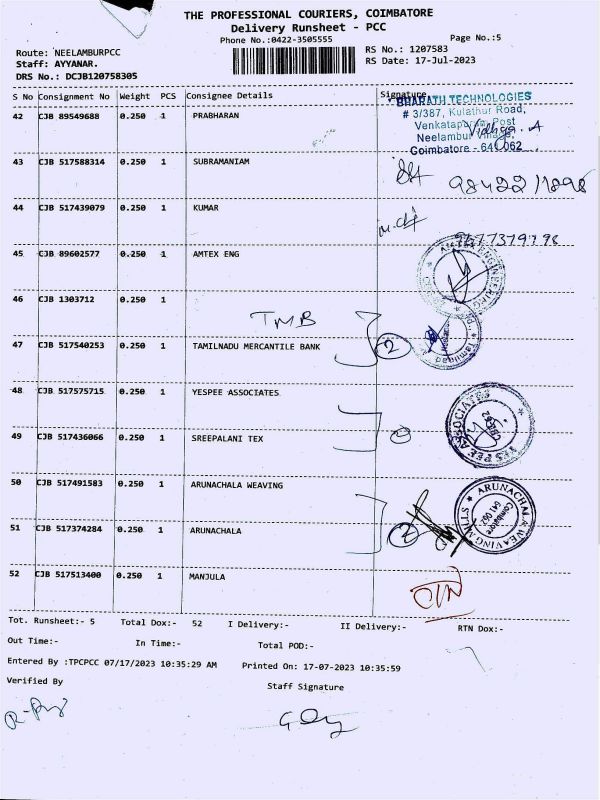 THE PROFESSIONAL COURIERS, COIMBATORE
Delivery Runsheet - PCC
Phone No.:0422-3505555
Page No.:5
Route: NEELAMBURPCC
RS No.: 1207583
Staff: AYYANAR.
RS Date: 17-Jul-2023
DRS No.: DCJB120758305
S No Consignment No Weight PCS Consignee Details Signature
BHARATH TECHNOLOGIES
# 3/387, Kulathur Road,
Venkatapuram Post
Neelambur Village,
Coimbatore - 641 062.
42 CJB 89549688 0.250 1 PRABHARAN
43 CJB 517588314 0.250 1 SUBRAMANIAM
44 CJB 517439079 0.250 1 KUMAR
45 CJB 89602577 0.250 1 AMTEX ENG
46 CJB 1303712 0.250 1
TMB
47 CJB 517540253 0.250 1 TAMILNADU MERCANTILE BANK 2
48 CJB 517575715 0.250 1 YESPEE ASSOCIATES
YES PEE ASSOCIATES
49 CJB 517436066 0.250 1 SREEPALANI TEX
50 CJB 517491583 0.250 1 ARUNACHALA WEAVING
ARUNACHALA WEAVING MILLS
Coimbatore
641 062
51 CJB 517374284 0.250 1 ARUNACHALA 2
52 CJB 517513400 0.250 1 MANJULA
Tot. Runsheet:- 5 Total Dox:- 52 I Delivery:- II Delivery:- RTN Dox:-
Out Time:- In Time:- Total POD:-
Entered By :TPCPCC 07/17/2023 10:35:29 AM Printed On: 17-07-2023 10:35:59
Verified By
Staff Signature